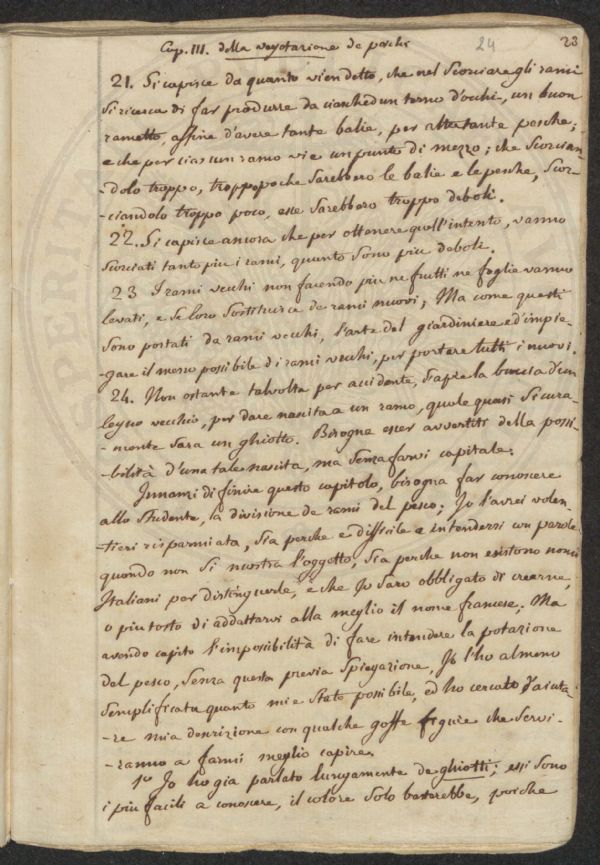 Cap. III. della vegetazione de peschi 24 23
21. Si capisce da quanto vien detto, che nel scorciare gli rami
si ricerca di far produrre da ciaschedun torno d'occhi, un buon
rametto, affine d'avere tante balie, per altertante pesche;
e che per ciascun ramo vi e un punto di mezzo; che scorcian-
-dolo troppo, troppo poche sarebbero le balie e le pesche, scor-
-ciandolo troppo poco, esse sarebbero troppo deboli.
22. Si capisce ancora che per ottenere quell'intento, vanno
scorciati tanto piu i rami, quanto sono piu deboli.
23 I rami vecchi non facendo piu ne frutti ne foglie vanno
levati, e se loro sostituisce de rami nuovi; Ma come questi
sono portati da rami vecchi, l'arte del giardiniere e d'impie-
-gare il meno possibile di rami vecchi, per portare tutti i nuovi.
24. Non ostante talvolta per accidente, s'apre la buccia d'un
legno vecchio, per dare nascita a un ramo, quale quasi sicura-
-mente sara un ghiotto. Bisogna esser avvertiti della possi-
-bilità d'una tale nascita, ma senza farvi capitale.
Innanzi di finire questo capitolo, bisogna far conoscere
allo studente, la divisione de rami del pesco; Io l'avrei volen-
-tieri risparmiata, sia perche e difficile a intendersi con parole
quando non si mostra l'oggetto, sia perche non esistono nomi
Italiani per distinguerle, e che Io saro obbligato di crearne,
o piu tosto di addattarvi alla meglio il nome francese. Ma
avendo capito l'imposibilità di fare intendere la potazione
del pesco, senza questa previa spiegazione, Io l'ho almeno
semplificata quanto mi e stato possibile, ed ho cercato d'aiuta-
-re mia descrizione con qualche goffe figure che servi-
-ranno a farmi meglio capire.
1° Io ho gia parlato lungamente de ghiotti; essi sono
i piu facili a conoscere, il colore solo basterebbe, poiche